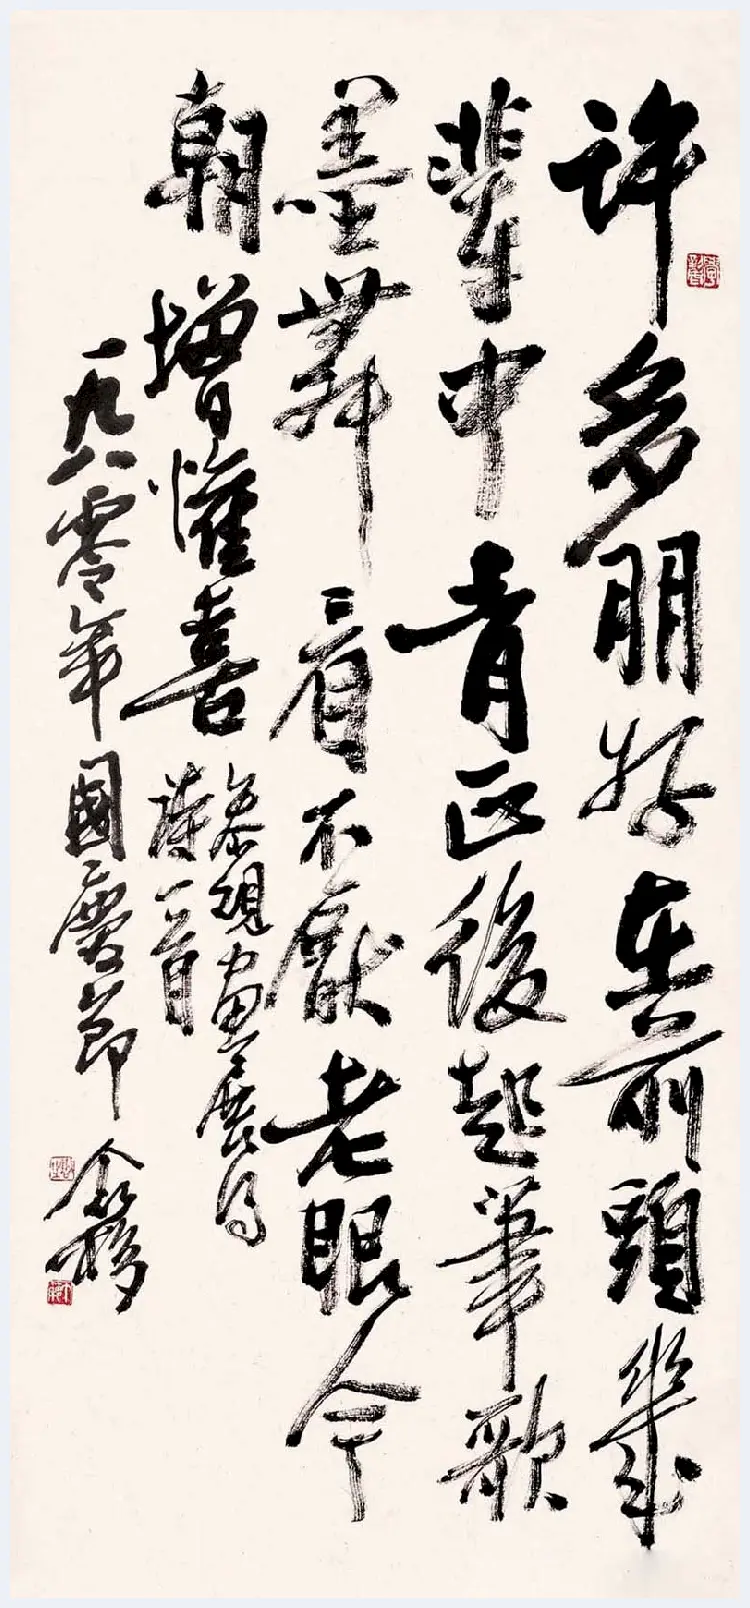 許多朋好在前頭幾
輩中青正後起筆歌
墨舞看不厭老眼今
朝增懽喜
參觀畫展得
詩一首
一九八零年國慶節